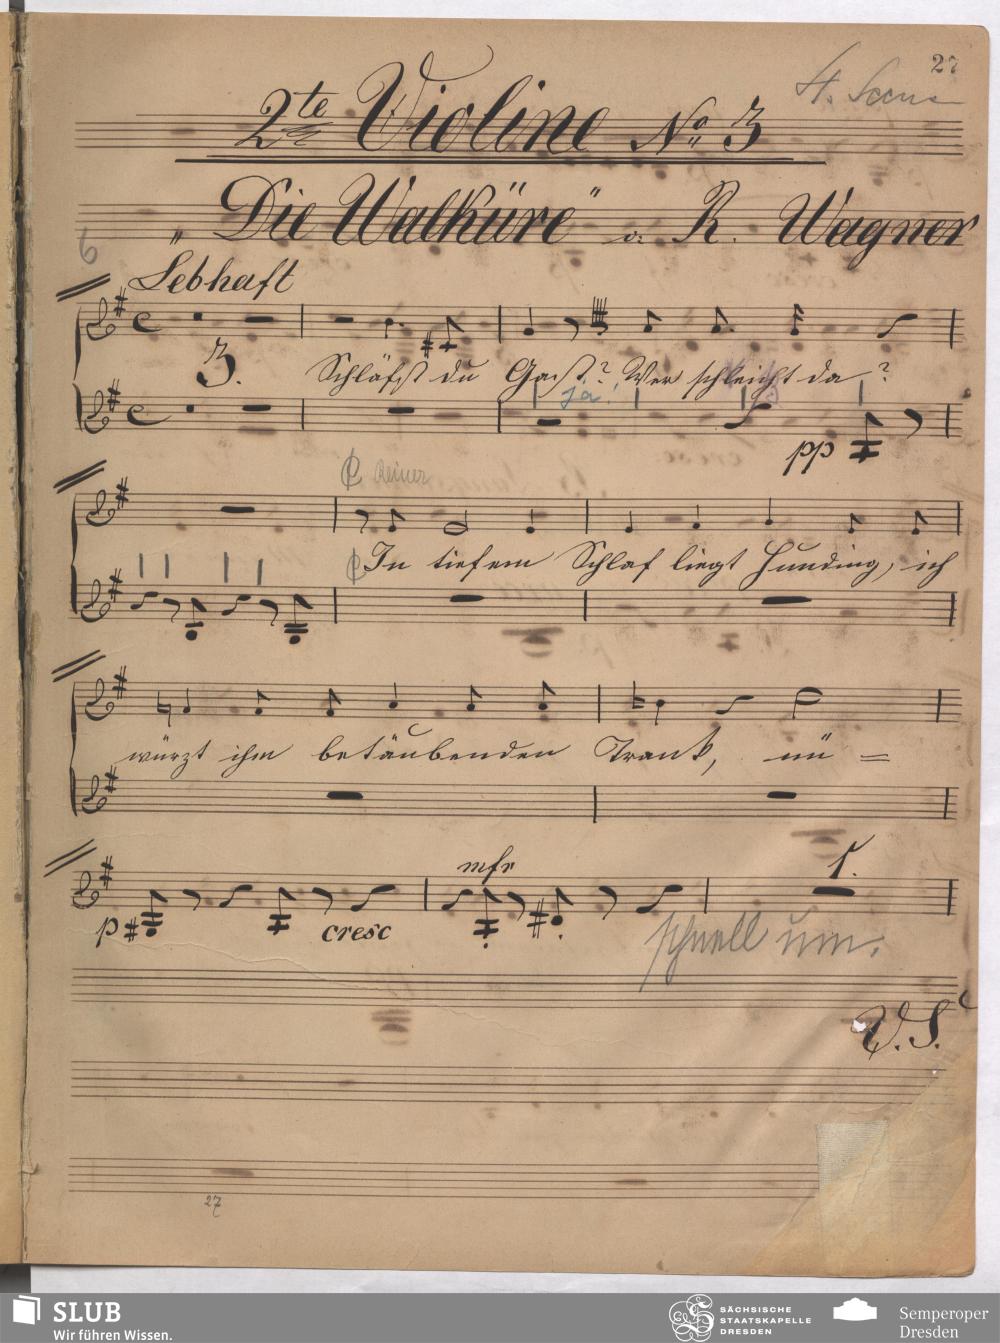 27
4. Scene
2te Violine No 3
„Die Walküre" v. R. Wagner
6
Lebhaft
3.
Schläfst du Gast? Wer schleicht da?
ja!
pp
Reiner
In tiefem Schlaf liegt Hunding, ich
würzt ihm betäubenden Trank, nü =
mfr
1.
p cresc
schnell um.
V. S.
27
SLUB
Wir führen Wissen.
SÄCHSISCHE
STAATSKAPELLE
DRESDEN
Semperoper
Dresden